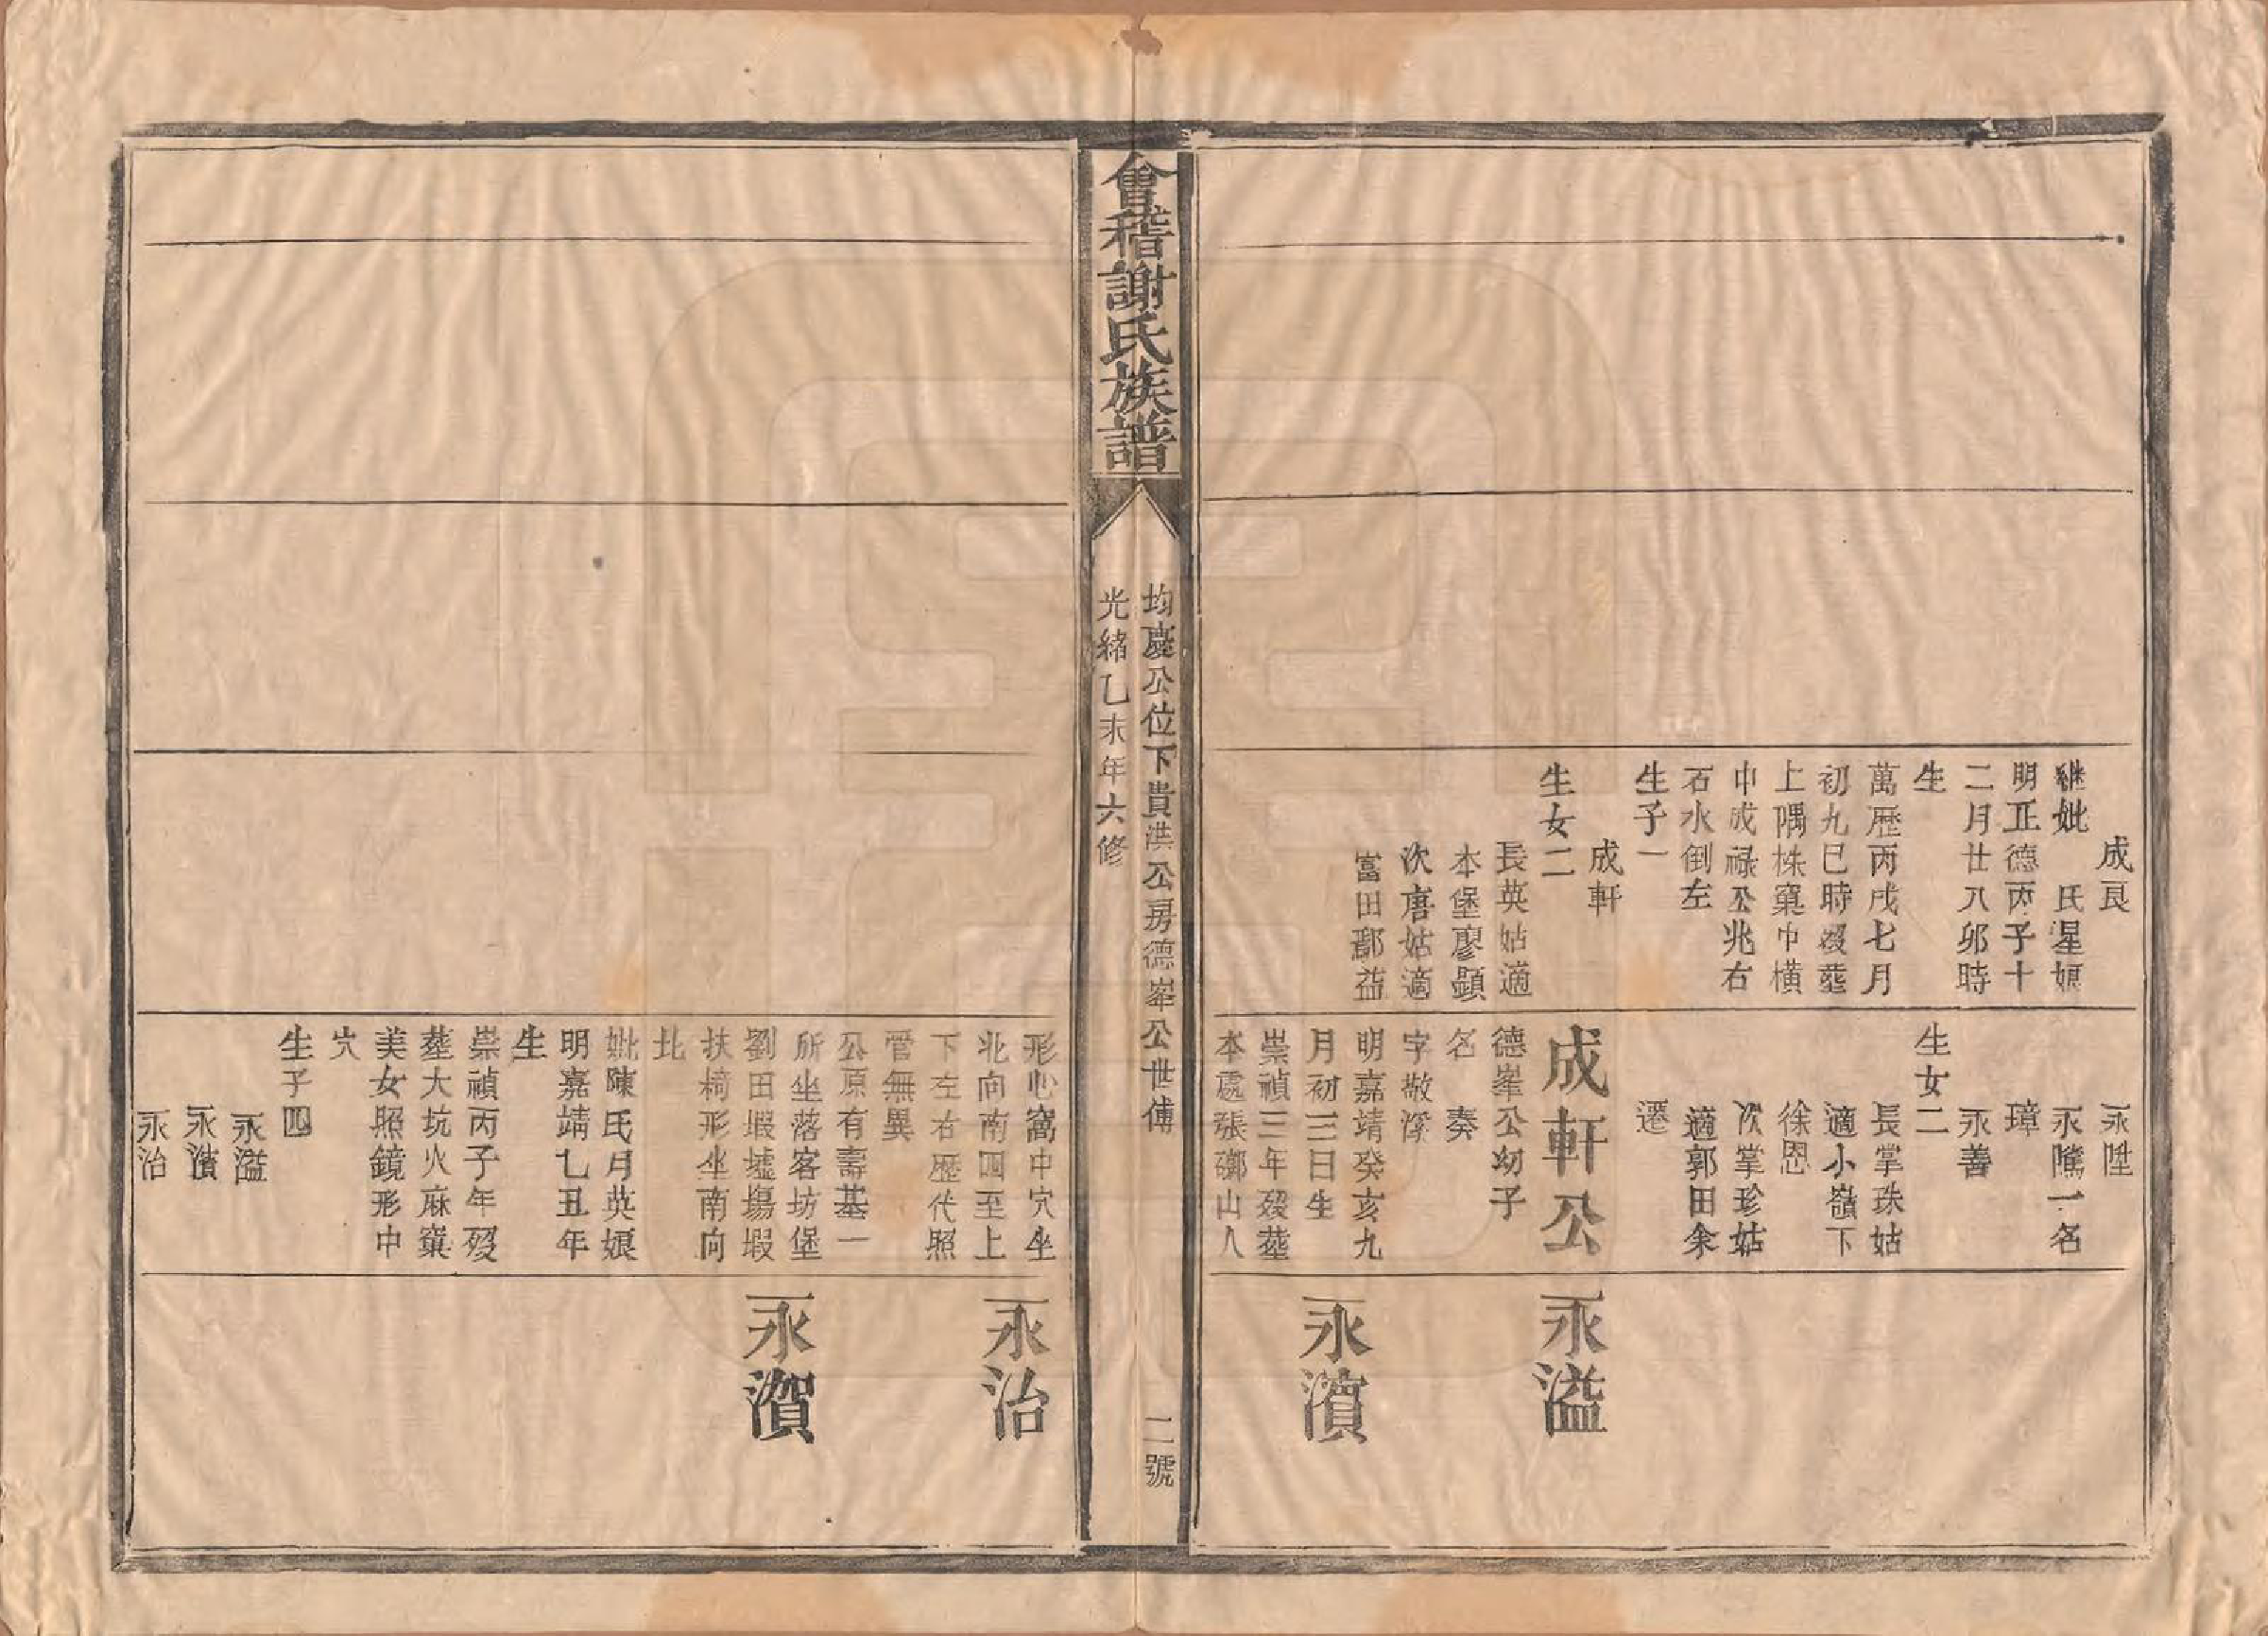 成艮
継妣　氏星娘
明正德丙子十
二月廿八卯時
生
萬歷丙戌七月
初九巳時殁塟
上隅株窠中橫
中成祿公兆右
石水倒左
生子一
成軒
生女二
長英姑適
本堡廖顯
次唐姑適
富田鄢益
永陞
永隲一名
璋
永善
生女二
長掌珠姑
適小嶺下
徐恩
次掌珍姑
適郭田余
遷
成軒公
德峯公幼子
名　奏
字敬
明嘉靖癸亥九
月初三日生
崇禎三年殁塟
本處張鄉山人
永溢
永濱
會稽謝氏族譜
均慶公位下貴洪公房德峯公世傅
二號
光緒乙未年六修
形心窩中穴坐
北向南四至上
下左右歷代照
管無異
公原有壽基一
所坐落客坊堡
劉田塅墟塲塅
扶椅形坐南向
北
妣陳氏月英娘
明嘉靖乙丑年
生
崇禎丙子年殁
塟大坑火麻窠
美女照鏡形中
穴
生子四
永溢
永濱
永治
永治
永濵